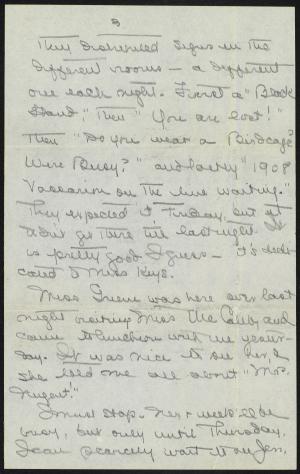 3
They distributed signs in the
different rooms — a different
one each night. First a "Black
Hand", Then "You are lost!"
Then "Do you wear a Birdcage?
Wire Busy?" and lastly "1908
Vassarion on the line waiting."
They expected it Friday, but it
didn't get here till last night
is pretty good I guess — it's dedi-
cated to Miss Keys.
Miss Greene was here over last
night visiting Miss Mc Caleb, and
came to luncheon with me yester-
day. It was nice to see her, &
she told me all about "Mr.
Nugent."
I must stop. Next week I'll be
busy, but only until Thursday.
I can scarcely wait to see you,